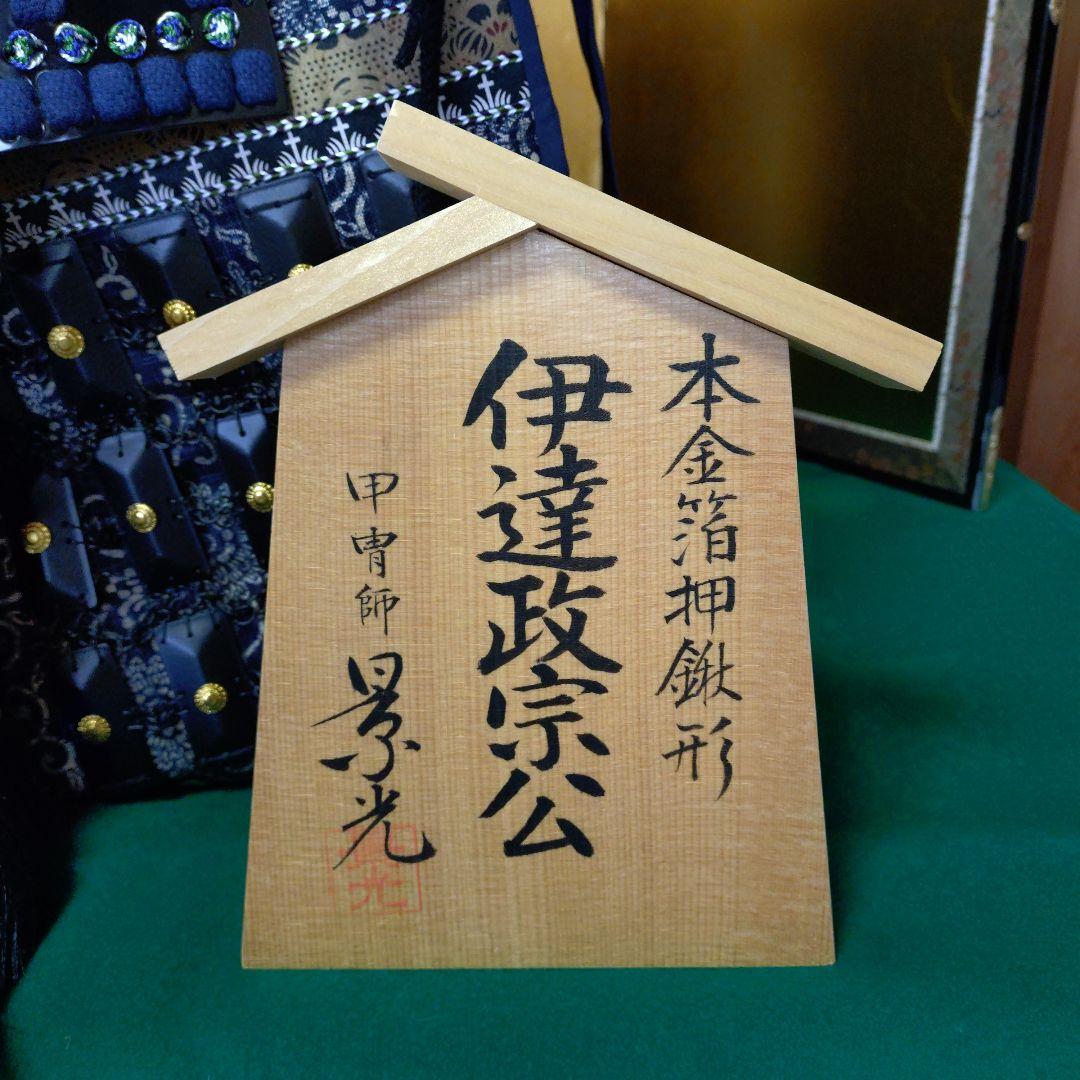 本金箔押鍬形
伊達政宗公
甲冑師 景光